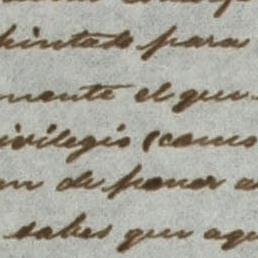 pintado para
mente el que
ivilegio (como
an de poner a
sabes que aqu